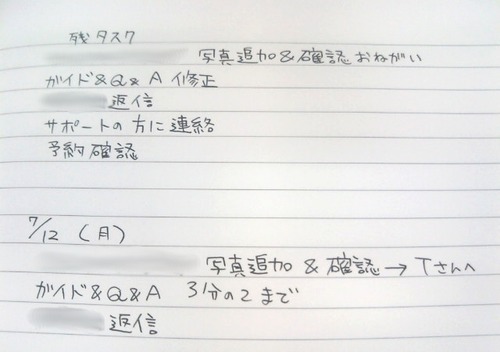 残タスク
写真追加&確認おねがい
ガイド&Q&A 修正
返信
サポートの方に連絡
予約確認
7/12 (月)
写真追加&確認→Tさんへ
ガイド&Q&A 3分の2まで
返信